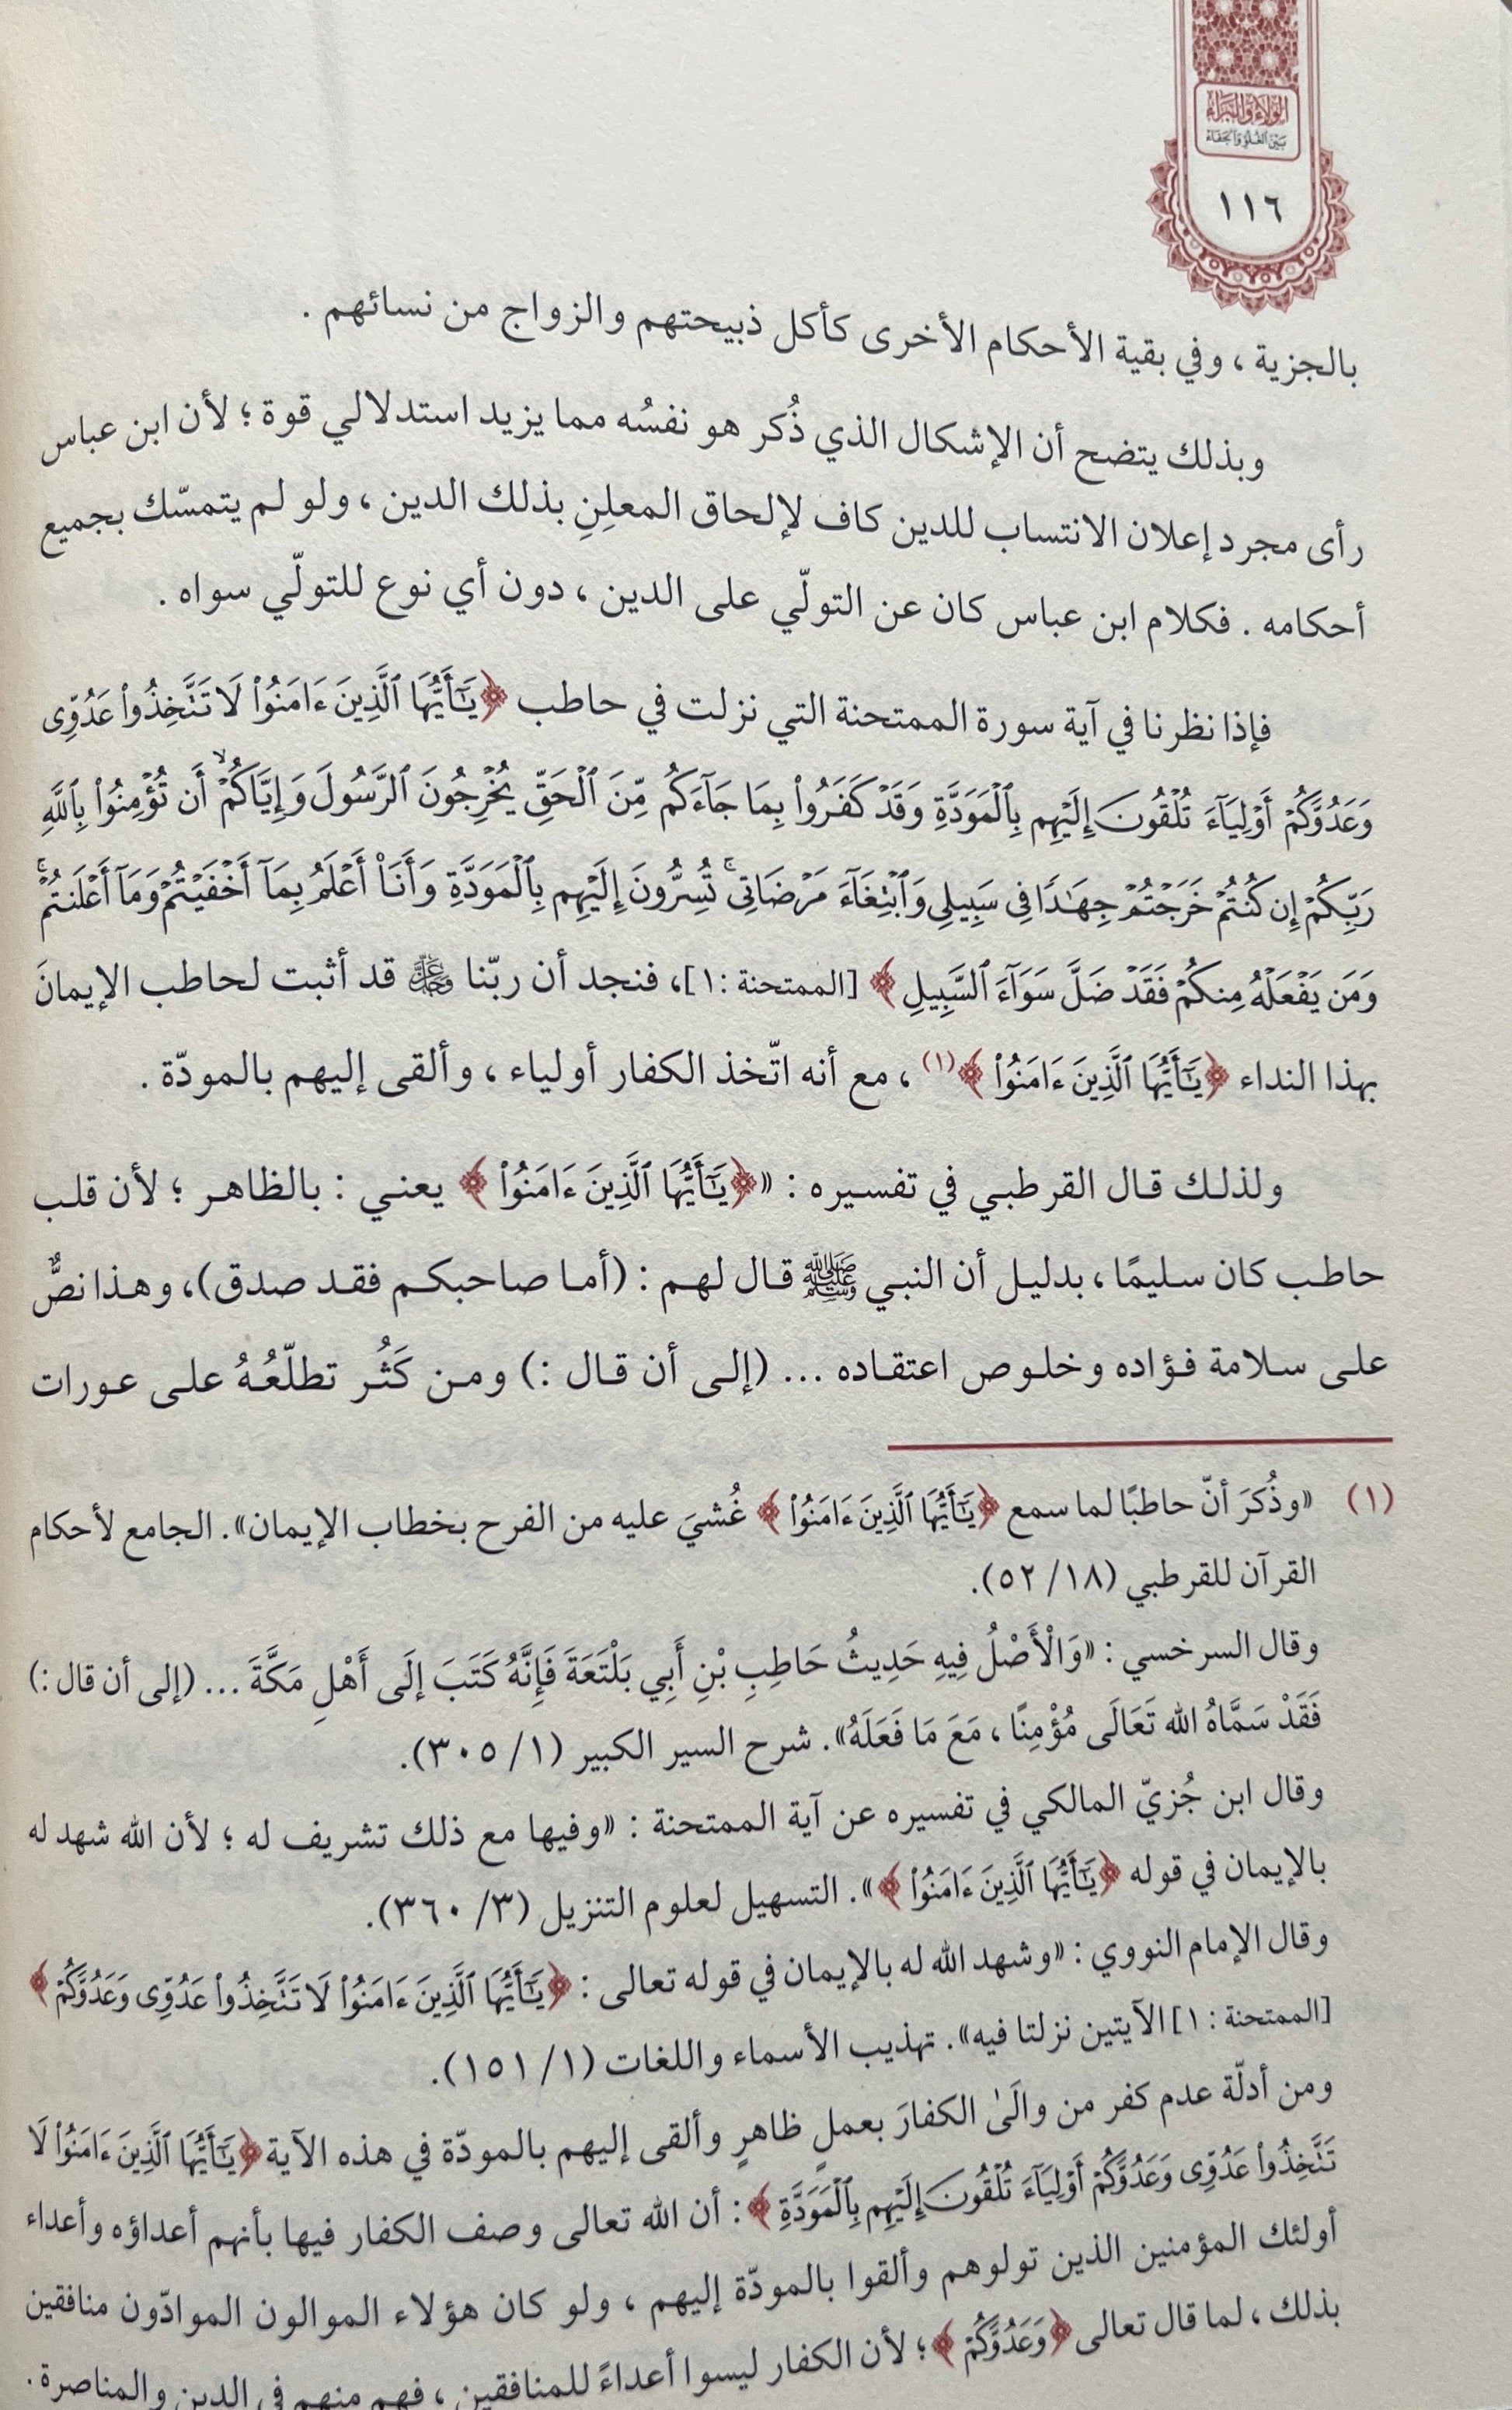 الولاء والبراء
بين الغلو والجفاء
١١٦
بالجزية ، وفي بقية الأحكام الأخرى كأكل ذبيحتهم والزواج من نسائهم .
وبذلك يتضح أن الإشكال الذي ذُكر هو نفسُه مما يزيد استدلالي قوة ؛ لأن ابن عباس
رأى مجرد إعلان الانتساب للدين كاف لإلحاق المعلِنِ بذلك الدين ، ولو لم يتمسّك بجميع
أحكامه . فكلام ابن عباس كان عن التولّي على الدين ، دون أي نوع للتولّي سواه .
فإذا نظرنا في آية سورة الممتحنة التي نزلت في حاطب ﴿يَٰٓأَيُّهَا ٱلَّذِينَ ءَامَنُوا۟ لَا تَتَّخِذُوا۟ عَدُوِّى
وَعَدُوَّكُمْ أَوْلِيَآءَ تُلْقُونَ إِلَيْهِم بِٱلْمَوَدَّةِ وَقَدْ كَفَرُوا۟ بِمَا جَآءَكُم مِّنَ ٱلْحَقِّ يُخْرِجُونَ ٱلرَّسُولَ وَإِيَّاكُمْ ۙ أَن تُؤْمِنُوا۟ بِٱللَّهِ
رَبِّكُمْ إِن كُنتُمْ خَرَجْتُمْ جِهَٰدًا فِى سَبِيلِى وَٱبْتِغَآءَ مَرْضَاتِى ۚ تُسِرُّونَ إِلَيْهِم بِٱلْمَوَدَّةِ وَأَنَا۠ أَعْلَمُ بِمَآ أَخْفَيْتُمْ وَمَآ أَعْلَنتُمْ ۚ
وَمَن يَفْعَلْهُ مِنكُمْ فَقَدْ ضَلَّ سَوَآءَ ٱلسَّبِيلِ﴾ [الممتحنة :١]، فنجد أن ربّنا عَزَّ وَجَلَّ قد أثبت لحاطب الإيمانَ
بهذا النداء ﴿يَٰٓأَيُّهَا ٱلَّذِينَ ءَامَنُوا۟﴾(١) ، مع أنه اتّخذ الكفار أولياء ، وألقى إليهم بالمودّة .
ولذلك قال القرطبي في تفسيره : «﴿يَٰٓأَيُّهَا ٱلَّذِينَ ءَامَنُوا۟﴾ يعني : بالظاهر ؛ لأن قلب
حاطب كان سليمًا ، بدليل أن النبي ﷺ قال لهم : (أما صاحبكم فقد صدق)، وهذا نصٌّ
على سلامة فؤاده وخلوص اعتقاده ... (إلى أن قال :) ومن كَثُر تطلّعُهُ على عورات
(١) «وذُكرَ أنّ حاطبًا لما سمع ﴿يَٰٓأَيُّهَا ٱلَّذِينَ ءَامَنُوا۟﴾ غُشيَ عليه من الفرح بخطاب الإيمان». الجامع لأحكام
القرآن للقرطبي (١٨/ ٥٢).
وقال السرخسي : «وَالْأَصْلُ فِيهِ حَدِيثُ حَاطِبِ بْنِ أَبِي بَلْتَعَةَ فَإِنَّهُ كَتَبَ إلَى أَهْلِ مَكَّةَ ... (إلى أن قال :)
فَقَدْ سَمَّاهُ الله تَعَالَى مُؤْمِنًا ، مَعَ مَا فَعَلَهُ». شرح السير الكبير (١/ ٣٠٥).
وقال ابن جُزيّ المالكي في تفسيره عن آية الممتحنة : «وفيها مع ذلك تشريف له ؛ لأن الله شهد له
بالإيمان في قوله ﴿يَٰٓأَيُّهَا ٱلَّذِينَ ءَامَنُوا۟﴾». التسهيل لعلوم التنزيل (٣/ ٣٦٠).
وقال الإمام النووي : «وشهد الله له بالإيمان في قوله تعالى : ﴿يَٰٓأَيُّهَا ٱلَّذِينَ ءَامَنُوا۟ لَا تَتَّخِذُوا۟ عَدُوِّى وَعَدُوَّكُمْ﴾
[الممتحنة : ١] الآيتين نزلتا فيه». تهذيب الأسماء واللغات (١/ ١٥١).
ومن أدلّة عدم كفر من والَىٰ الكفارَ بعملٍ ظاهرٍ وألقى إليهم بالمودّة في هذه الآية ﴿يَٰٓأَيُّهَا ٱلَّذِينَ ءَامَنُوا۟ لَا
تَتَّخِذُوا۟ عَدُوِّى وَعَدُوَّكُمْ أَوْلِيَآءَ تُلْقُونَ إِلَيْهِم بِٱلْمَوَدَّةِ﴾ : أن الله تعالى وصف الكفار فيها بأنهم أعداؤه وأعداء
أولئك المؤمنين الذين تولوهم وألقوا بالمودّة إليهم ، ولو كان هؤلاء الموالون الموادّون منافقين
بذلك ، لما قال تعالى ﴿وَعَدُوَّكُمْ﴾ ؛ لأن الكفار ليسوا أعداءً للمنافقين ، فهم منهم في الدين والمناصرة.